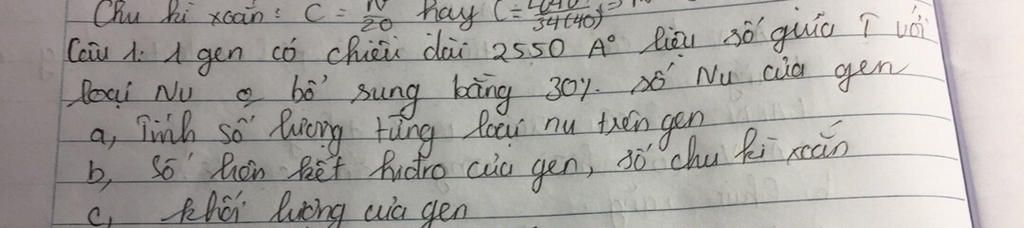 Chu kì xoắn: C = N/20 hay C =
Câu 1: 1 gen có chiều dài 2550 A° hiệu số giữa T với
loại Nu bổ sung bằng 30% số Nu của gen
a, Tính số lượng từng loại nu trên gen
b, Số liên kết hidro của gen, số chu kì xoắn
c, khối lượng của gen